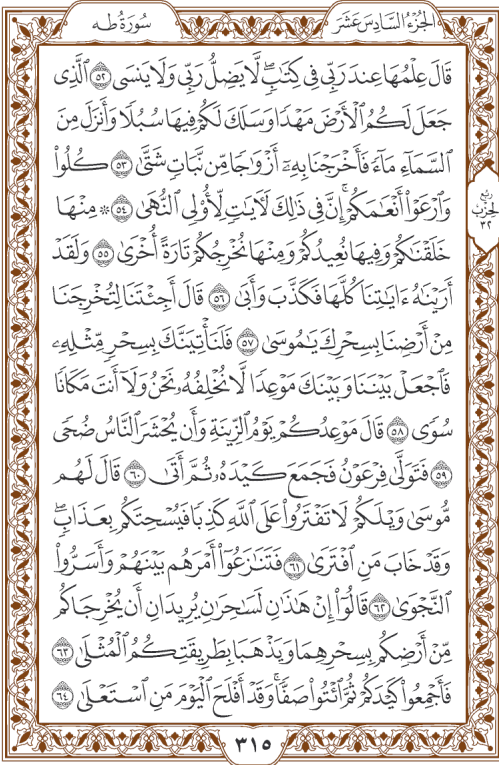 الجُزْءُ السَّادِسَ عَشَرَ
سُورَةُ طه
قَالَ عِلْمُهَا عِندَ رَبِّى فِى كِتَٰبٍۖ لَّا يَضِلُّ رَبِّى وَلَا يَنسَى ٥٢ ٱلَّذِى
جَعَلَ لَكُمُ ٱلْأَرْضَ مَهْدًا وَسَلَكَ لَكُمْ فِيهَا سُبُلًا وَأَنزَلَ مِنَ
ٱلسَّمَآءِ مَآءً فَأَخْرَجْنَا بِهِۦٓ أَزْوَٰجًا مِّن نَّبَاتٍ شَتَّىٰ ٥٣ كُلُوا۟
وَٱرْعَوْا۟ أَنْعَٰمَكُمْۗ إِنَّ فِى ذَٰلِكَ لَـَٔايَٰتٍ لِّأُو۟لِى ٱلنُّهَىٰ ٥٤ ۞ مِنْهَا
خَلَقْنَٰكُمْ وَفِيهَا نُعِيدُكُمْ وَمِنْهَا نُخْرِجُكُمْ تَارَةً أُخْرَىٰ ٥٥ وَلَقَدْ
أَرَيْنَٰهُ ءَايَٰتِنَا كُلَّهَا فَكَذَّبَ وَأَبَىٰ ٥٦ قَالَ أَجِئْتَنَا لِتُخْرِجَنَا
مِنْ أَرْضِنَا بِسِحْرِكَ يَٰمُوسَىٰ ٥٧ فَلَنَأْتِيَنَّكَ بِسِحْرٍ مِّثْلِهِۦ
فَٱجْعَلْ بَيْنَنَا وَبَيْنَكَ مَوْعِدًا لَّا نُخْلِفُهُۥ نَحْنُ وَلَآ أَنتَ مَكَانًا
سُوًى ٥٨ قَالَ مَوْعِدُكُمْ يَوْمُ ٱلزِّينَةِ وَأَن يُحْشَرَ ٱلنَّاسُ ضُحًى
٥٩ فَتَوَلَّىٰ فِرْعَوْنُ فَجَمَعَ كَيْدَهُۥ ثُمَّ أَتَىٰ ٦٠ قَالَ لَهُم
مُّوسَىٰ وَيْلَكُمْ لَا تَفْتَرُوا۟ عَلَى ٱللَّهِ كَذِبًا فَيُسْحِتَكُم بِعَذَابٍۖ
وَقَدْ خَابَ مَنِ ٱفْتَرَىٰ ٦١ فَتَنَٰزَعُوٓا۟ أَمْرَهُم بَيْنَهُمْ وَأَسَرُّوا۟
ٱلنَّجْوَىٰ ٦٢ قَالُوٓا۟ إِنْ هَٰذَٰنِ لَسَٰحِرَٰنِ يُرِيدَانِ أَن يُخْرِجَاكُم
مِّنْ أَرْضِكُم بِسِحْرِهِمَا وَيَذْهَبَا بِطَرِيقَتِكُمُ ٱلْمُثْلَىٰ ٦٣
فَأَجْمِعُوا۟ كَيْدَكُمْ ثُمَّ ٱئْتُوا۟ صَفًّاۚ وَقَدْ أَفْلَحَ ٱلْيَوْمَ مَنِ ٱسْتَعْلَىٰ ٦٤
ربع
الحزب
٣٢
٣١٥